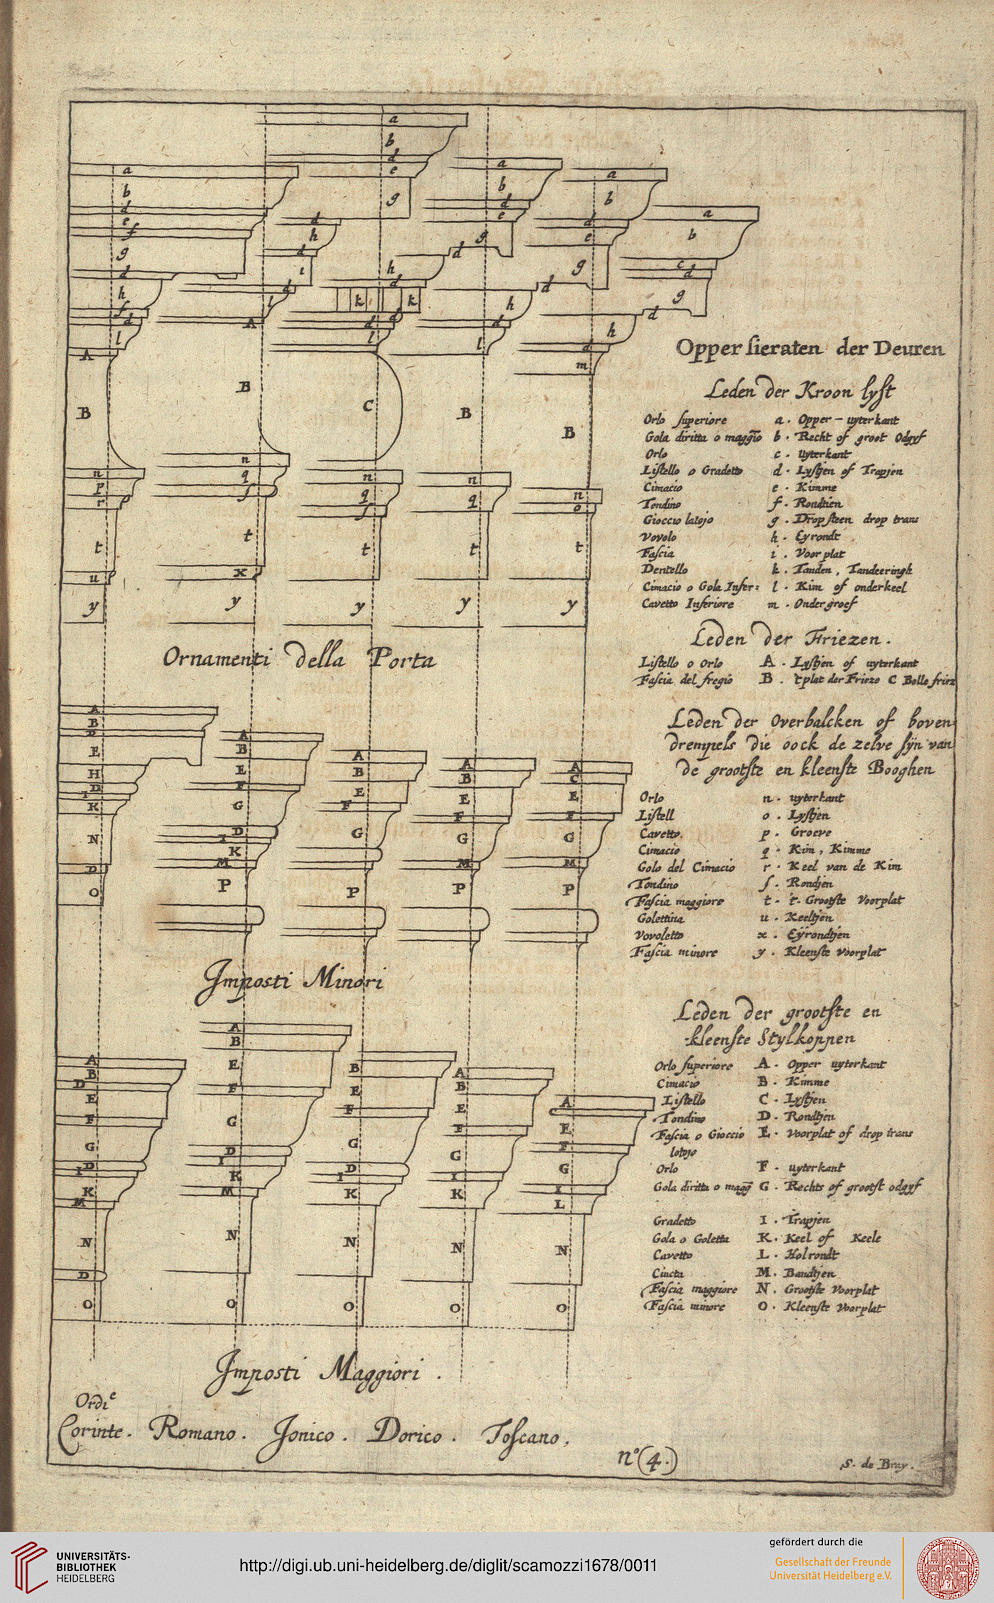 Ornamenti della Porta
Imposti Minori
Imposti Maggiori .
Ordi^e
Corinte . Romano . Jonico . Dorico . Toscano .
n° (4.)
Opper sieraten der Deuren
Leden der Kroon lyst
Orlo superiore a . Opper - uyterkant
Gola diritta o maggio b . Recht of groot Odgyf
Orlo c . uyterkant
Listello o Gradetto d . Lystjen of Trapjen
Cimacio e . Kimme
Tondino f . Rondtien
Gioccio latojo g . Drop steen drop trans
Vovolo h . Eyrondt
Fascia i . Voor plat
Dentello k . Tanden , Tandeeringh
Cimacio o Gola Infer: l . Kim of onderkeel
Cavetto Inferiore m . Onder groef
Leden der Friezen .
Listello o Orlo A . Lystjen of uyterkant
Fascia del fregio B . t'plat der Frieze C Bolle frize
Leden der Overbalcken of boven
drempels die oock de zelve sijn van
de grootste en kleenste Booghen
Orlo n . uyterkant
Listell o . Lystjen
Cavetto. p . Groeve
Cimacio q . Kim , Kimme
Golo del Cimacio r . Keel van de Kim
Tondino s . Rondjen
Fascia maggiore t . Grootste Voorplat
Golettina u . Keeltjen
Vovoletto x . Eyrondtjen
Fascia minore y . Kleenste Voorplat
Leden der grootste en
kleenste Stylkoppen
Orlo superiore A . Opper uyterkant
Cimacio B . Kimme
Listello C . Lystjen
Tondino D . Rondtjen
Fascia o Gioccio E . Voorplat of drop trans
lotojo
Orlo F . uyterkant
Gola diritta o magg G . Rechts of grootst odgyf
Gradetto I . Trapjen
Gola o Goletta K . Keel of Keele
Cavetto L . Holrondt
Cincta M . Bandtjen
Fascia maggiore N . Grootste Voorplat
Fascia minore O . Kleenste Voorplat
S. de Bray .
UNIVERSITÄTS-
BIBLIOTHEK
HEIDELBERG
http://digi.ub.uni-heidelberg.de/diglit/scamozzi1678/0011
gefördert durch die
Gesellschaft der Freunde
Universität Heidelberg e.V.